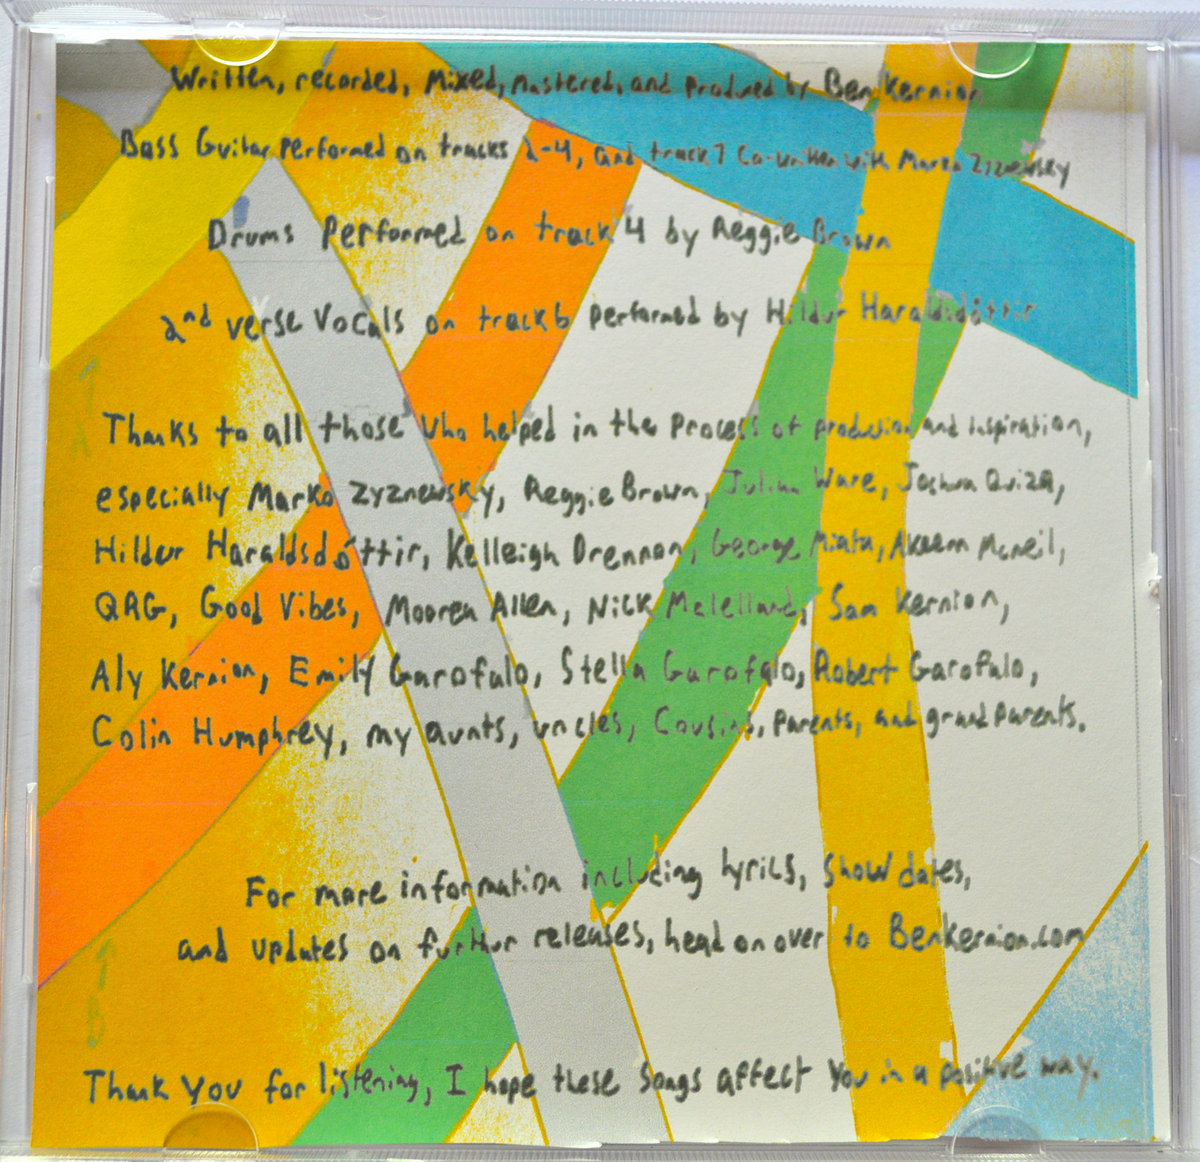 Written, recorded, Mixed, mastered, and produced by Ben Kernion
Bass Guitar performed on tracks 2-4, and track 7 Co-written with Marko Zyznewsky
Drums Performed on track 4 by Reggie Brown
2nd verse vocals on track 6 performed by Hildur Haraldsdóttir
Thanks to all those who helped in the Process of production and inspiration,
especially Marko Zyznewsky, Reggie Brown, Julian Ware, Joshua Quiza,
Hildur Haraldsdóttir, Kelleigh Drennan, George Miata, Akeem Mcneil,
QRG, Good Vibes, Mooren Allen, Nick Melelland, Sam Kernion,
Aly Kernion, Emily Garofalo, Stella Garofalo, Robert Garofalo,
Colin Humphrey, my aunts, uncles, Cousins, Parents, and grand Parents.
For more information including lyrics, Show dates,
and updates on further releases, head on over to BenKernion.com
Thank You for listening, I hope these Songs affect You in a positive way.